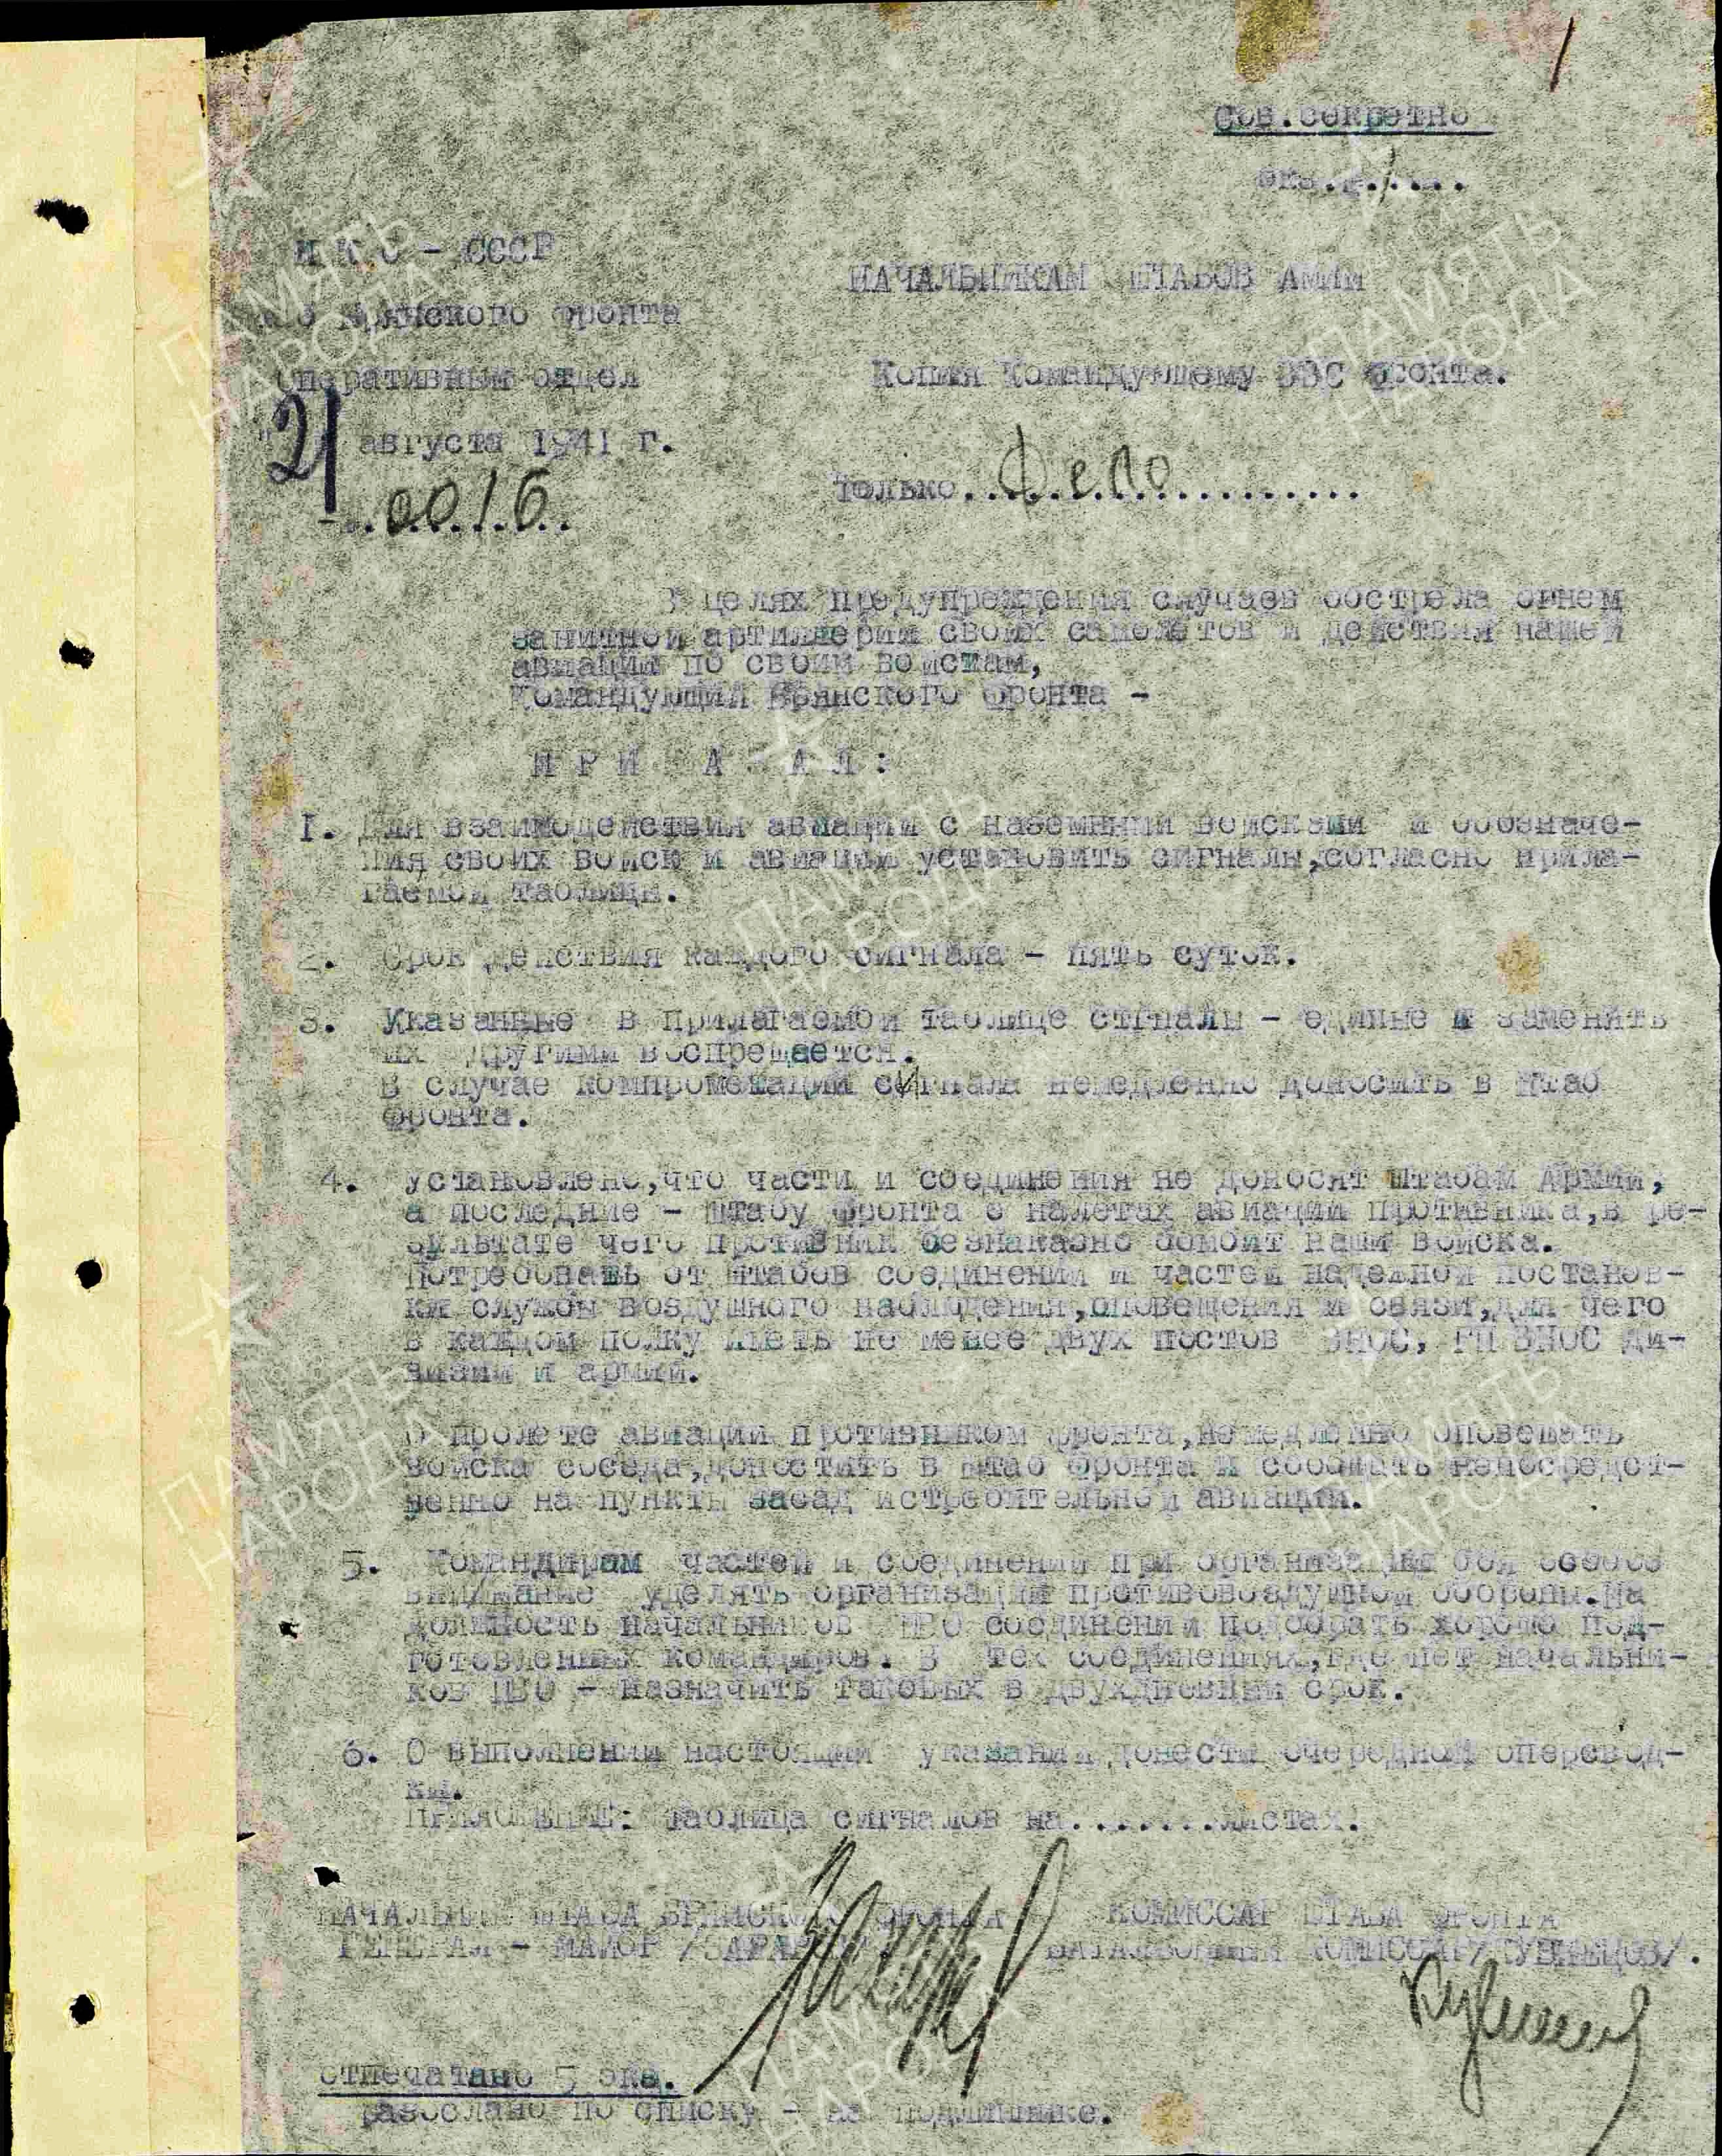 Сов.секретно
экз.№.1....
Н К О - СССР
НАЧАЛЬНИКАМ ШТАБОВ АМИИ
Брянского фронта
Копия Командующему ВВС фронта.
Оперативный отдел
"21 августа 1941 г.
только..Дело..........
..0016..
В целях предупреждения случаев обстрела огнем
зенитной артиллерии своих самолетов и действия нашей
авиации по своим войскам,
Командующий Брянского фронта -
П Р И А А Л :
1. Для взаимодействия авиации с наземными войсками и обозначе-
ния своих войск и авиации установить сигналы,согласно прила-
гаемой таблицы.
2. Срок действия каждого сигнала - пять суток.
3. Указанные в прилагаемой таблице стгналы - единые и заменять
их другими воспрещается.
В случае компрометации сигнала немедленно доносить в штаб
фронта.
4. установлено,что части и соединения не доносят штабам Армии,
а последние - штабу фронта о налетах авиации противника,в ре-
зультате чего противник безнаказно бомбит наши войска.
Потребовать от штабов соединений и частей надежной постанов-
ки службы воздушного наблюдения,оповещения и связи,для чего
в каждом полку иметь не менее двух постов ВНОС, ГП ВНОС ди-
визии и армии.
О пролете авиации противником фронта,немедленно оповещать
войска соседа,доностить в штаб фронта и сообщать непосредст-
венно на пункты засад истребительной авиации.
5. Командирам частей и соединений при организации боя особое
внимание уделять организации противовоздушной обороны.На
должность начальников ПВО соединений подобрать хорошо под-
готовленных командиров. В тех соединениях,где нет начальни-
ков ПВО - назначить таковых в двухдневный срок.
6. О выполнении настоящии указания донести очередной оперсвод-
кй.
ПРИЛОЖЕНИЕ: таблица сигналов на.......листах.
НАЧАЛЬНИК ШТАБА БРЯНСКОГО ФРОНТА КОМИССАР ШТАБА ФРОНТА
ГЕНЕРАЛ - МАЙОР /ЗАХАРОВ/ БАТАЛЬОННЫЙ КОМИССАР/КУВШИНОВ/.
отпечатано 5 экз.
разослано по списку - на подлиннике.
ПАМЯТЬ
НАРОДА
ПАМЯТЬ
НАРОДА
ПАМЯТЬ
НАРОДА
ПАМЯТЬ
НАРОДА
ПАМЯТЬ
НАРОДА
ПАМЯТЬ
НАРОДА